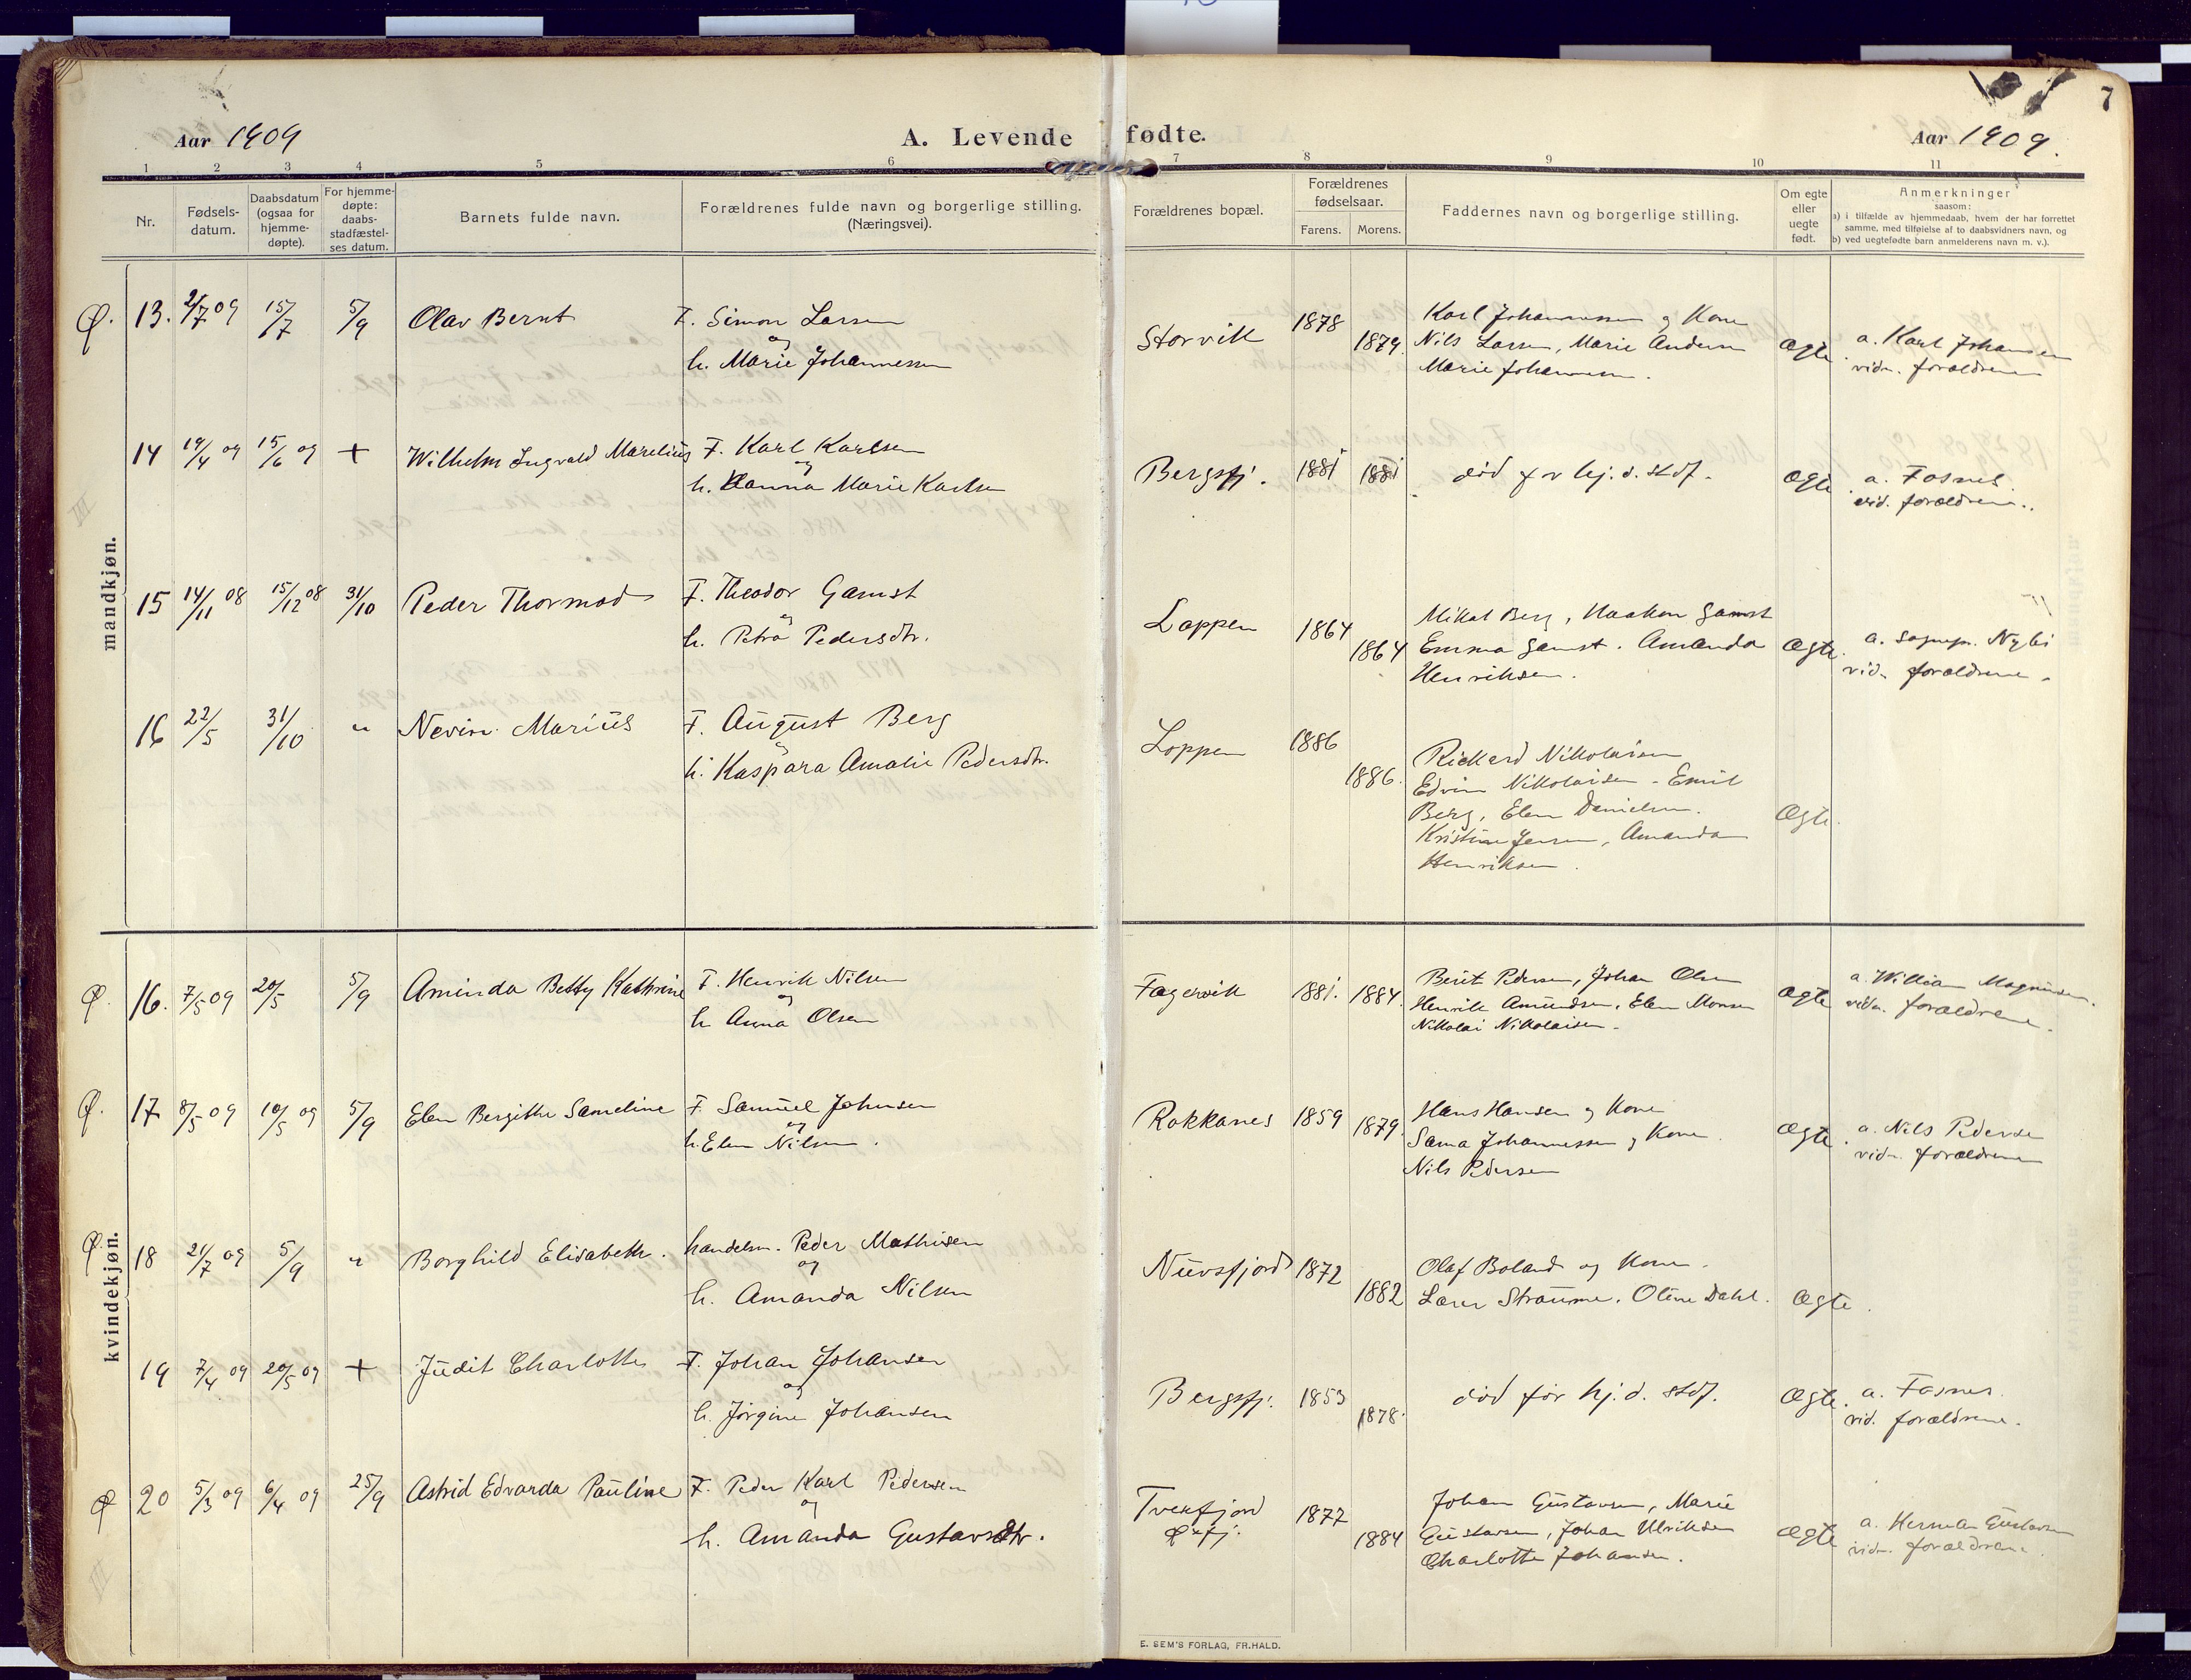 7
Aar 1909
A. Levende fødte.
Aar 1909.
1 2 3 4 5 6 7 8 9 10 11
Nr.
Fødsels-
datum.
Daabsdatum
(ogsaa for
hjemme-
døpte).
For hjemme-
døpte:
daabs-
stadfæstel-
ses datum.
Barnets fulde navn.
Forældrenes fulde navn og borgerlige stilling.
(Næringsvei).
Forældrenes bopæl.
Forældrenes
fødselsaar.
Farens. Morens.
Faddernes navn og borgerlige stilling.
Om egte
eller
uegte
født.
Anmerkninger
saasom:
a) i tilfælde av hjemmedaab, hvem der har forrettet
samme, med tilføielse af to daabsvidners navn, og
b) ved uegtefødte barn anmelderens navn m. v.).
mandkjøn.
Ø. 13. 2/7 09 15/7 5/9 Olav Bernt F. Simon Larsen
og
h. Marie Johannessen
Storvik 1878 1879.
Karl Johannessen og Kone
Nils Larsen, Marie Andersen
Marie Johannessen.
Ægte
a. Karl Johansen
vidn. forældrene
14 19/4 09 15/6 09 + Wilhelm Ingvald Marelius F. Karl Karlsen
og
h. Hanna Marie Karlsen
Bergsfj. 1881 1881
død før hj. d. stdf.
Ægte
a. Fosnes
vid. forældrene.
15 14/11 08 15/12 08 31/10 Peder Thormod F. Theodor Gamst
og
h. Petra Pedersdtr.
Loppen 1864 1864
Mikal Berg, Haakon Gamst
Emma Gamst. Amanda
Henriksen.
Ægte.
a. Sognepr. Nybi
vid. forældrene.
16 22/5 31/10 " Nevin Marius F. August Berg
og
h. Kaspara Amalie Pedersdtr.
Loppen 1886 1886.
Rickard Nikolaisen
Edvin Nikolaisen - Emil
Berg, Elen Danielsen.
Kristine Jensen, Amanda
Henriksen.
Ægte.
kvindekjøn.
Ø. 16. 7/5 09 20/5 5/9 Aminda Betty Kathrine F. Henrik Nilsen
og
h Anna Olsen
Fagervik 1881. 1884.
Berit Pedersen, Johan Olsen
Henrik Amundsen, Elen Monsen
Nikolai Nikolaisen.
Ægte
a. William Magnussen.
vidn. forældrene.
Ø. 17 8/5 09 10/5 09 5/9 Elen Bergithe Sameline F. Samuel Johnsen
og
h. Elen Nilsen.
Rokkanes 1859 1879.
Hans Hansen og Kone
Sama Johannessen og Kone.
Nils Pedersen
Ægte.
a. Nils Pedersen
vidn. forældrene
Ø. 18 21/7 09 5/9 " Borghild Elisabeth. handelsm. Peder Mathisen
og
h. Amanda Nilsen
Nuvsfjord 1872 1882
Olaf Boland og Kone.
Lærer Straume. Oline Dahl.
Ægte.
19 7/4 09 20/5 09 + Judit Charlotte F. Johan Johansen
og
h. Jørgine Johansen
Bergsfj. 1853 1878.
død før hj. d. stdf.
Ægte.
a. Fosnes.
vid. forældrene.
Ø 20 5/3 09 6/4 09 25/9 Astrid Edvarda Pauline F. Peder Karl Pedersen
og
h. Amanda Gustavsdtr.
Tverfjord
Øxfj. 1877 1884
Johan Gustavsen, Marie
Gustavsen, Johan Ulriksen
Charlotte Johansen.
Ægte
a. Herman Gustavsen
vidn. forældrene.
E. SEM'S FORLAG, FR.HALD.